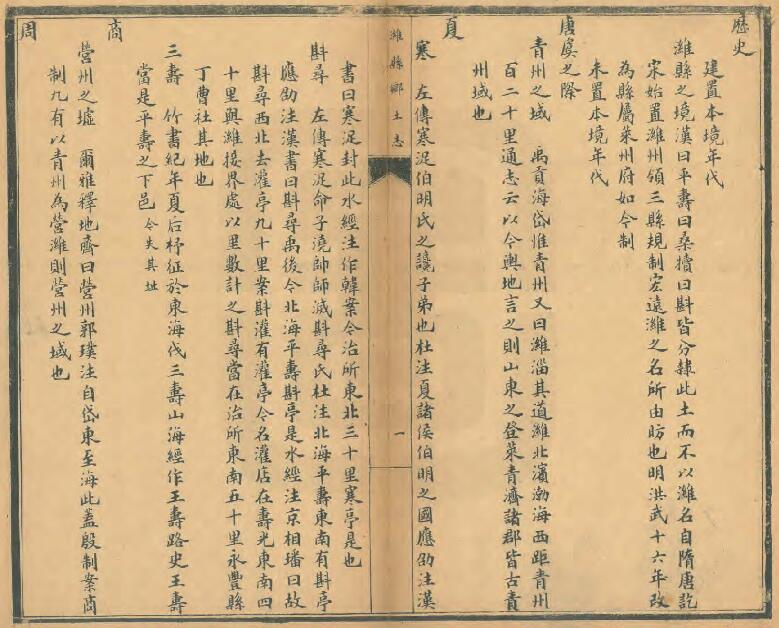 歷史
建置本境年代
濰縣之境漢曰平壽曰桑犢曰斟皆分隸此土而不以濰名自隋唐訖
宋始置濰州領三縣規制宏遠濰之名所由昉也明洪武十六年改
為縣屬萊州府如今制
未置本境年代
唐虞之際
青州之域　禹貢海岱惟青州又曰濰淄其道濰北濱渤海西距青州
百二十里通志云以今輿地言之則山東之登萊青濟諸郡皆古青
州域也
夏
寒　左傳寒浞伯明氏之讒子弟也杜注夏諸侯伯明之國應劭注漢
濰縣鄉土志
一
書曰寒浞封此水經注作𩏑案今治所東北三十里寒亭是也
斟尋　左傳寒浞命子澆帥師滅斟尋氏杜注北海平壽東南有斟亭
應劭注漢書曰斟尋禹後今北海平壽斟亭是水經注京相璠曰故
斟尋西北去灌亭九十里案斟灌有灌亭今名灌店在壽光東南四
十里與濰接界處以里數計之斟尋當在治所東南五十里永豐縣
丁曹社其地也
三壽　竹書紀年夏后杼征於東海伐三壽山海經作王壽路史王壽
當是平壽之下邑今失其址
商
營州之墟　爾雅釋地齊曰營州郭璞注自岱東至海此蓋殷制案商
制九有以青州為營濰則營州之域也
周